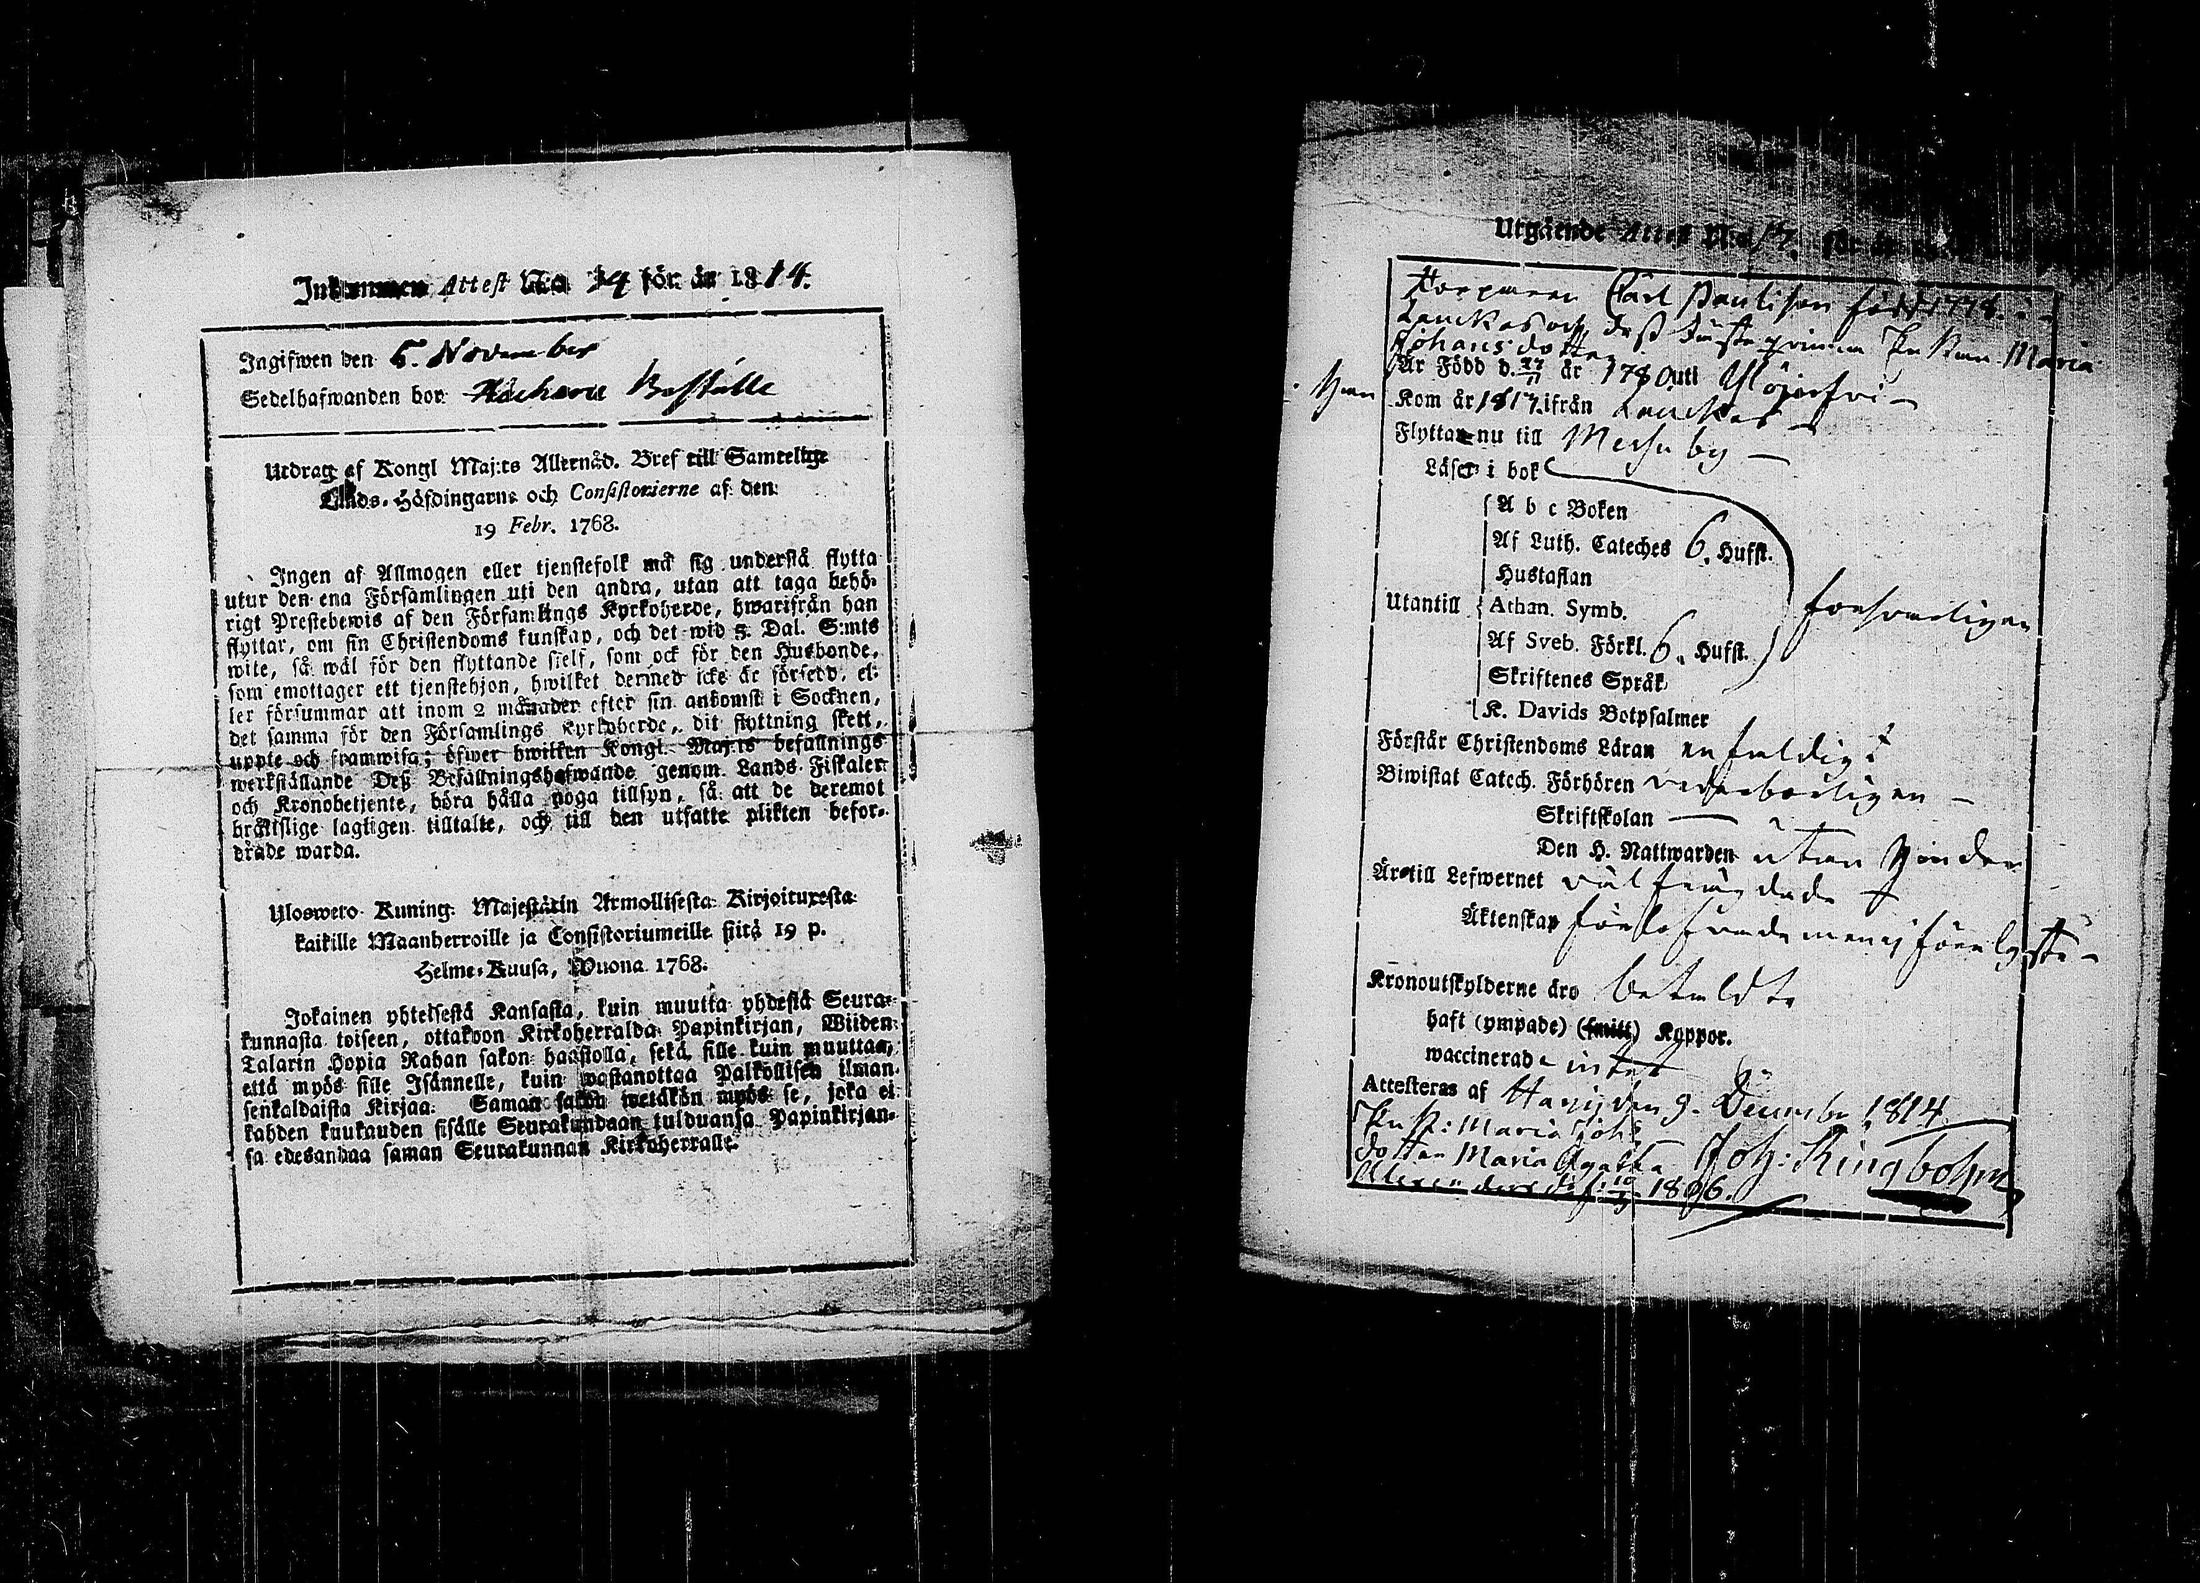 Inkommen Attest No. 14 för år 1814.
Ingifwen den 5. November
Sedelhafwanden bor Boställe
Utdrag af Kongl Maj:ts Allernåd. Bref till Samtelige
Lands-Höfdingarne och Consistorierne af den
19 Febr. 1768.
Ingen af Allmogen eller tjenstefolk må sig understå flytta
utur den ena Församlingen uti den andra, utan att taga behö-
rigt Prestebewis af den Församlings Kyrkoherde, hwarifrån han
flyttar, om sin Christendoms kunskap, och det wid 5. Dal. S:mts
wite, så wäl för den flyttande sielf, som ock för den Husbonde,
som emottager ett tjenstehjon, hwilket dermed icke är försedd, el-
ler försummar att inom 2 månader efter sin ankomst i Socknen,
det samma för den Församlings Kyrkoherde, dit flyttning skett,
uppte och framwisa; öfwer hwilken Kongl. Maj:ts befallnings
werkställande Deß Befallningshafwande genom Lands-Fiskaler
och Kronobetjente, böra hålla noga tillsyn, så att de deremot
bråttslige lagligen tilltalte, och till den utsatte plikten befor-
drade warda.
Uloswero Kuning: Majestätin Armollisesta Kirjoituxesta
kaikille Maanherroille ja Consistoriumeille siitä 19 p.
Helme-Kuusa, Wuona 1768.
Jokainen yhteisestä Kansasta, kuin muutta yhdestä Seura-
kunnasta toiseen, ottakoon Kirkoherralda Papinkirjan, Wiiden
Talarin Hopia Rahan sakon haastolla, sekä sille kuin muuttaa,
että myös sille Isännelle, kuin wastanottaa Palkollisen ilman
senkaldaista Kirjaa. Saman sakon wetäkön myös se, joka ei
kahden kuukauden sisälle Seurakundaan tulduansa Papinkirjan-
sa edesannaa saman Seurakunnan Kirkoherralle.
Utgående Attest No 17. för år
Torparen Carl Paulison född 1778. i
Lauckas och deß Hustru Maria
Johansdotter
Är Född d. 27/11 år 1780 uti Ylöjerfvi
Han Kom år 1817 ifrån Lauckas
Flyttar nu till Messuby
Läser i bok
A b c Boken
Af Luth. Cateches 6. Hufst.
Hustaflan
Utantill Athan. Symb. försvarligen
Af Sveb. Förkl. 6. Hufst.
Skriftenes Språk
K. Davids Botpsalmer
Förstår Christendoms Läran enfaldigt
Biwistat Catech. Förhören vederbörligen
Skriftskolan
Den H. Nattwarden utan hinder
Är till Lefwernet välfrägdade
Äktenskap
Kronoutskylderne äro betaldte
haft (ympade) (smitt) Koppor.
waccinerade intet
Attesteras af den 9. December 1814.
Maria Joh:
dotter Maria Agatha Joh: Ringbohm
1806.